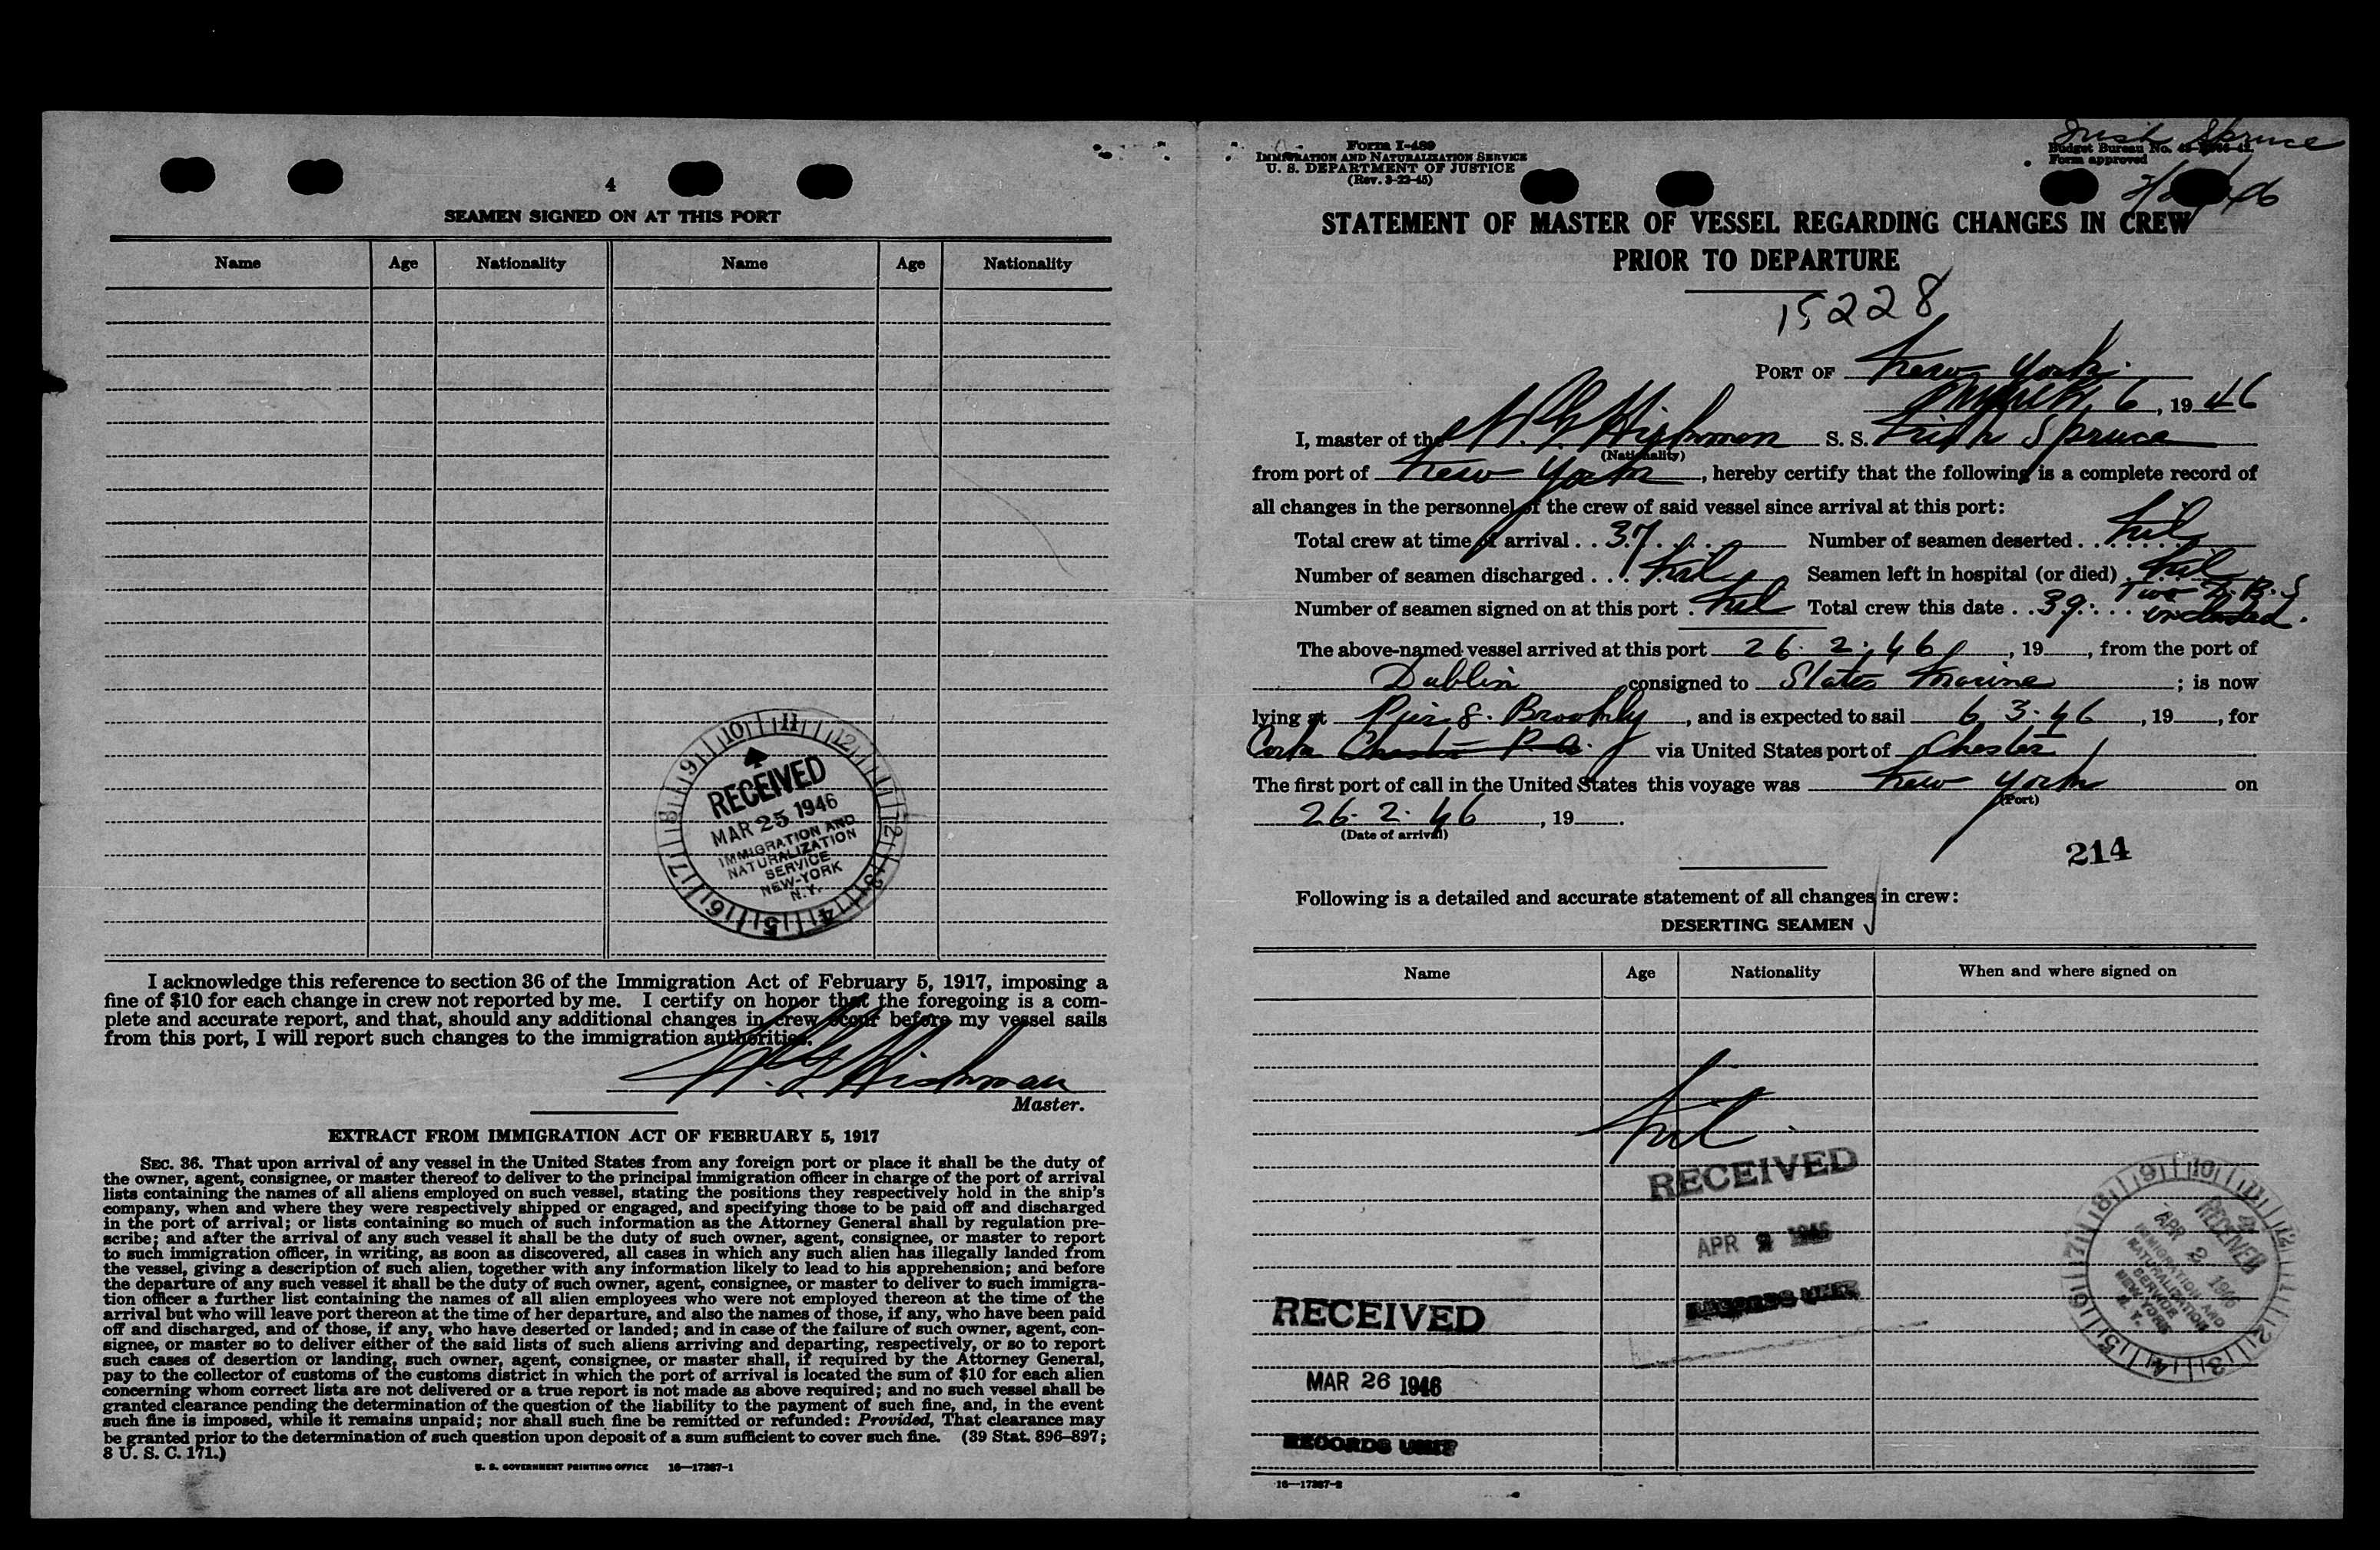 4
SEAMEN SIGNED ON AT THIS PORT
Name Age Nationality Name Age Nationality
RECEIVED
MAR 25 1946
IMMIGRATION AND
NATURALIZATION
SERVICE
NEW-YORK
N.Y.
I acknowledge this reference to section 36 of the Immigration Act of February 5, 1917, imposing a
fine of $10 for each change in crew not reported by me. I certify on honor that the foregoing is a com-
plete and accurate report, and that, should any additional changes in crew occur before my vessel sails
from this port, I will report such changes to the immigration authorities.
Master.
EXTRACT FROM IMMIGRATION ACT OF FEBRUARY 5, 1917
SEC. 36. That upon arrival of any vessel in the United States from any foreign port or place it shall be the duty of
the owner, agent, consignee, or master thereof to deliver to the principal immigration officer in charge of the port of arrival
lists containing the names of all aliens employed on such vessel, stating the positions they respectively hold in the ship's
company, when and where they were respectively shipped or engaged, and specifying those to be paid off and discharged
in the port of arrival; or lists containing so much of such information as the Attorney General shall by regulation pre-
scribe; and after the arrival of any such vessel it shall be the duty of such owner, agent, consignee, or master to report
to such immigration officer, in writing, as soon as discovered, all cases in which any such alien has illegally landed from
the vessel, giving a description of such alien, together with any information likely to lead to his apprehension; and before
the departure of any such vessel it shall be the duty of such owner, agent, consignee, or master to deliver to such immigra-
tion officer a further list containing the names of all alien employees who were not employed thereon at the time of the
arrival but who will leave port thereon at the time of her departure, and also the names of those, if any, who have been paid
off and discharged, and of those, if any, who have deserted or landed; and in case of the failure of such owner, agent, con-
signee, or master so to deliver either of the said lists of such aliens arriving and departing, respectively, or so to report
such cases of desertion or landing, such owner, agent, consignee, or master shall, if required by the Attorney General,
pay to the collector of customs of the customs district in which the port of arrival is located the sum of $10 for each alien
concerning whom correct lists are not delivered or a true report is not made as above required; and no such vessel shall be
granted clearance pending the determination of the question of the liability to the payment of such fine, and, in the event
such fine is imposed, while it remains unpaid; nor shall such fine be remitted or refunded: Provided, That clearance may
be granted prior to the determination of such question upon deposit of a sum sufficient to cover such fine. (39 Stat. 896–897;
8 U. S. C. 171.)
U. S. GOVERNMENT PRINTING OFFICE 16—17387-1
Form I-489
IMMIGRATION AND NATURALIZATION SERVICE
U. S. DEPARTMENT OF JUSTICE
(Rev. 3-22-45)
Irish Spruce
Budget Bureau No.
Form approved
STATEMENT OF MASTER OF VESSEL REGARDING CHANGES IN CREW
PRIOR TO DEPARTURE
15228
PORT OF New York
March 6, 19 46
I, master of the S. S. Irish Spruce
(Nationality)
from port of New York, hereby certify that the following is a complete record of
all changes in the personnel of the crew of said vessel since arrival at this port:
Total crew at time of arrival . . 37 Number of seamen deserted . . Nil
Number of seamen discharged . . . Nil Seamen left in hospital (or died) Nil
Number of seamen signed on at this port . Nil Total crew this date . . 39 Two D.B.S included.
The above-named vessel arrived at this port 26. 2. 46, 19 , from the port of
Dublin consigned to States Marine ; is now
lying at Pier 8. Brooklyn, and is expected to sail 6. 3. 46, 19 , for
Cork Chester P.A. via United States port of Chester
The first port of call in the United States this voyage was New York on
(Port)
26. 2. 46, 19 .
(Date of arrival)
214
Following is a detailed and accurate statement of all changes in crew:
DESERTING SEAMEN
Name Age Nationality When and where signed on
Nil
RECEIVED
APR 2 1946
RECORDS UNIT
RECEIVED
APR 2 1946
IMMIGRATION AND
NATURALIZATION
SERVICE
NEW-YORK
N. Y.
RECEIVED
MAR 26 1946
RECORDS UNIT
16—17387-2